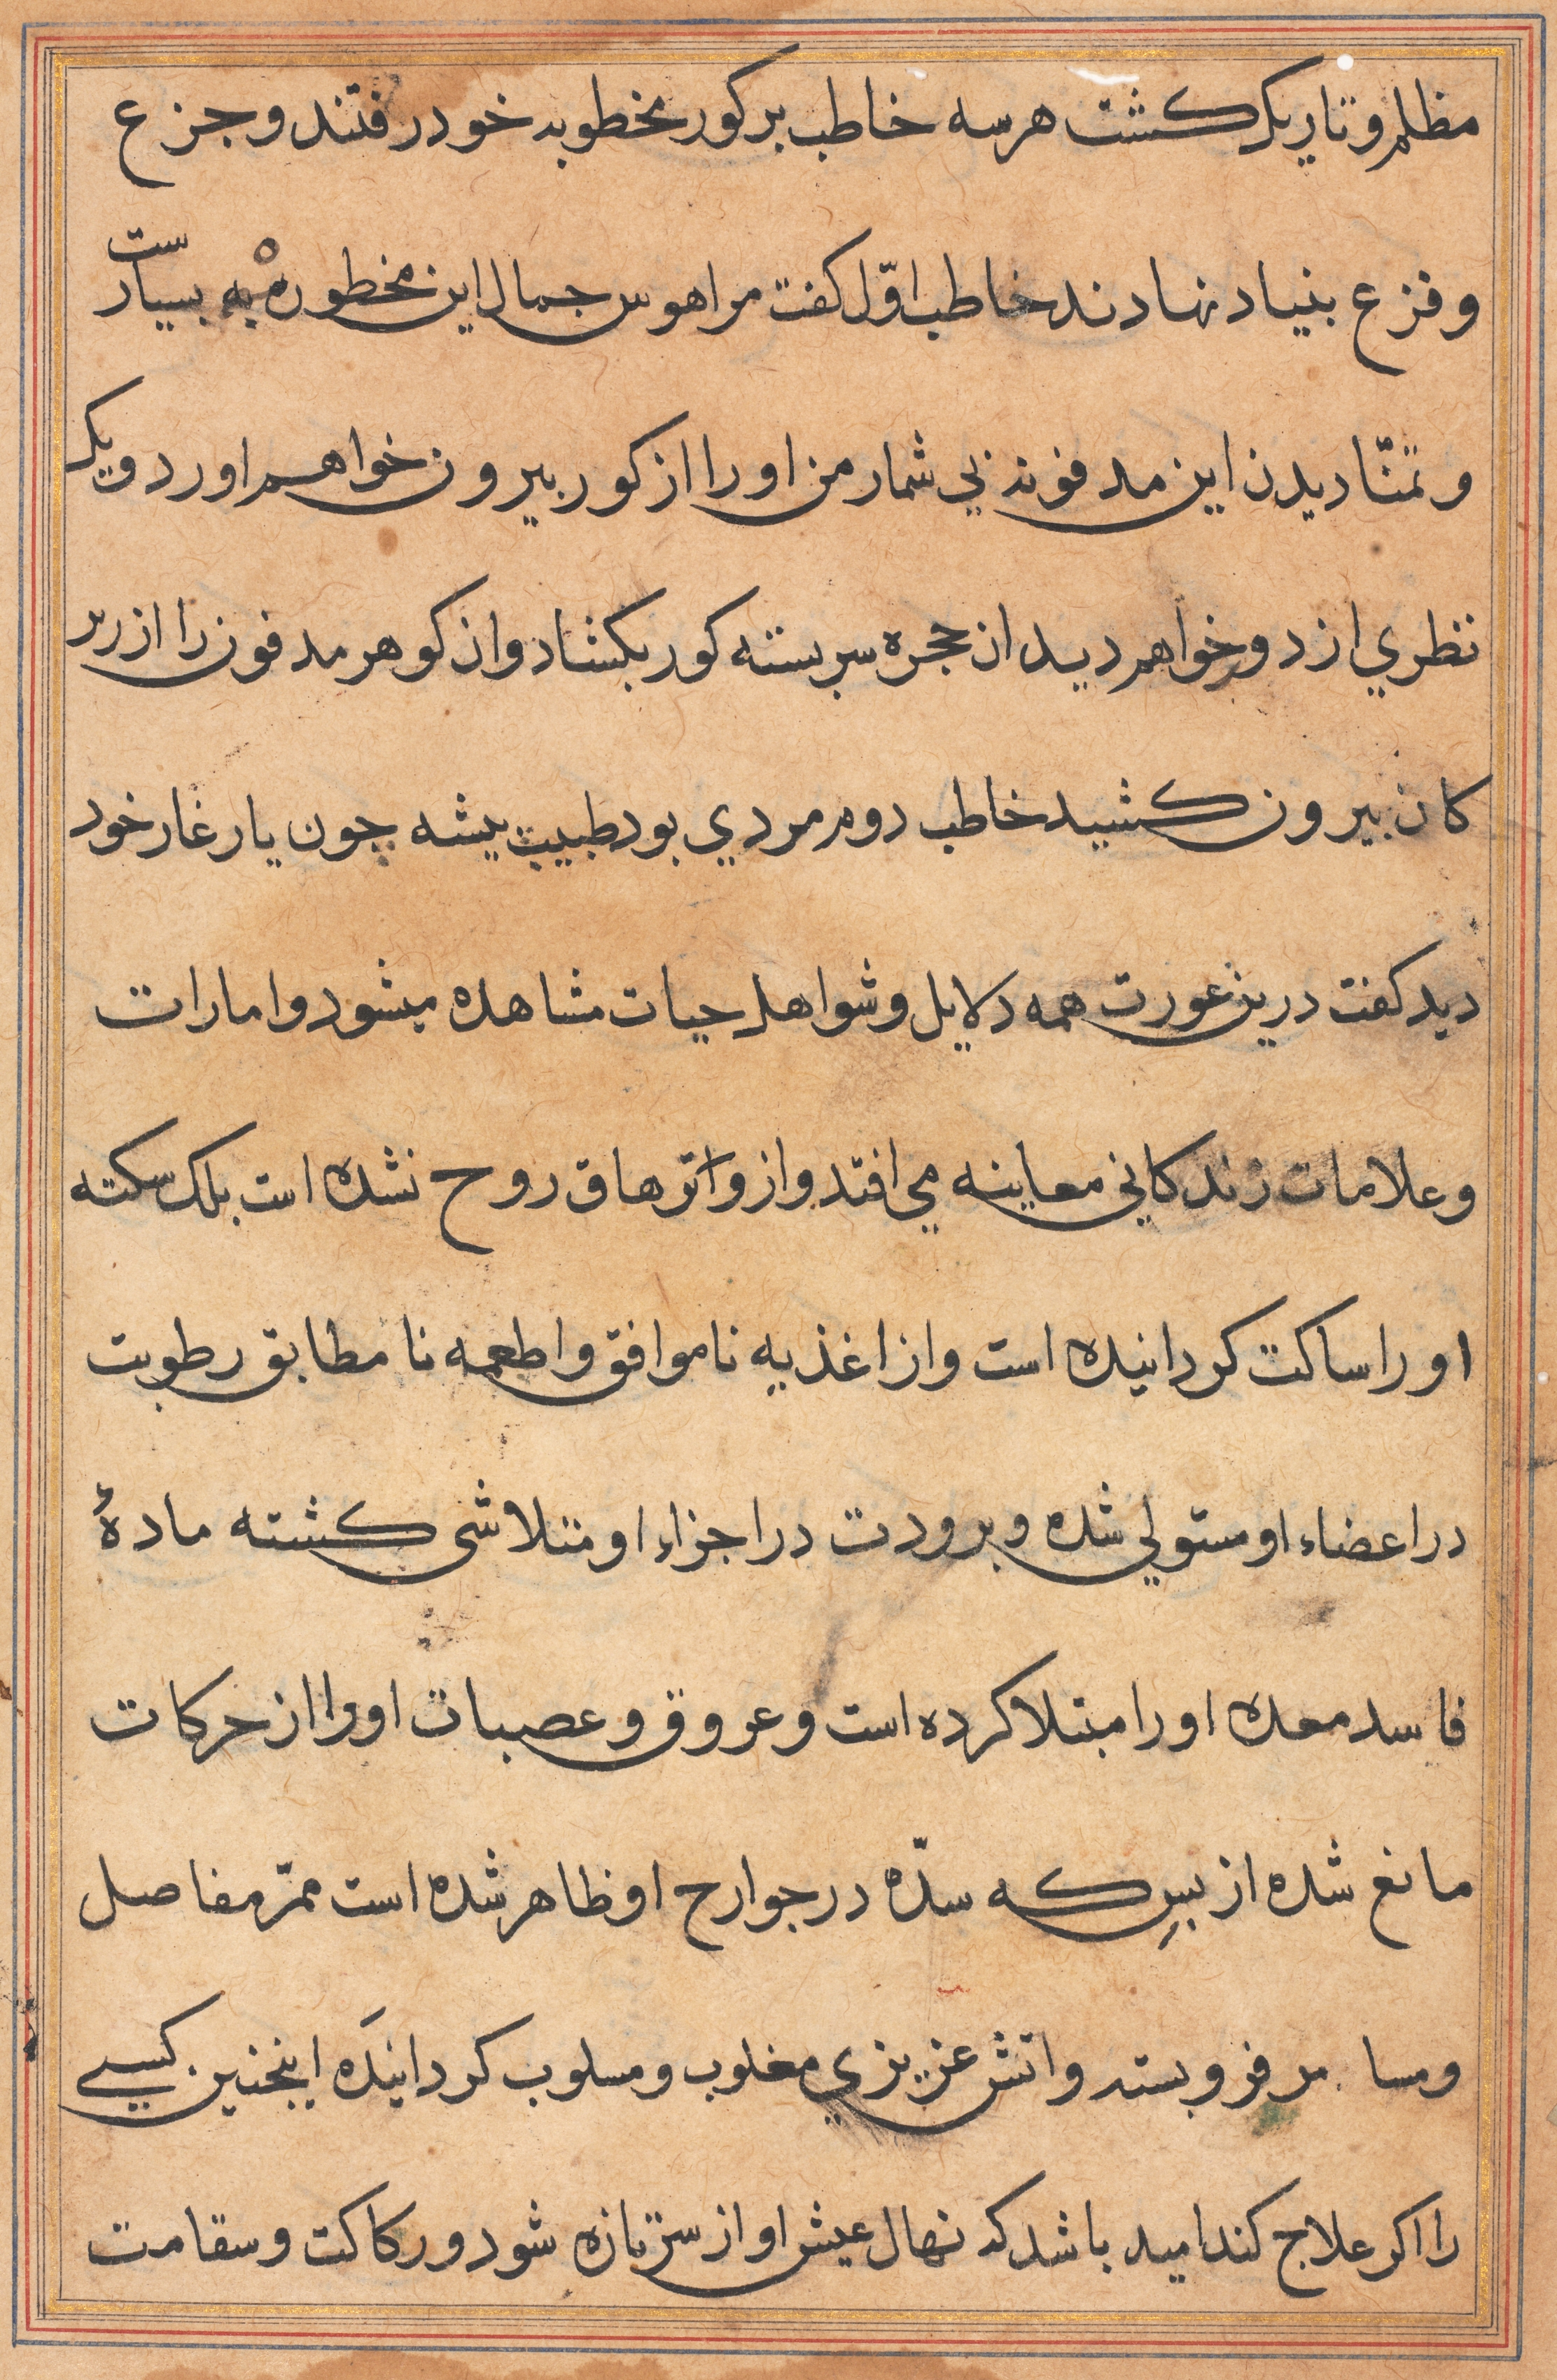 مظلم و تاریک کشت هر سه خاطب بر کور مخطوبه خود رفتند و جزع
و فزع بنیاد نهادند خاطب اوّل کفت مرا هوس جمال این مخطوبه بسیارست
و تمنّا دیدن این مدفونه بی شمار من او را از کور بیرون خواهم اورد و یک
نظری از دور خواهم دید ان حجره سربسته کور بکشاد و ان کوهر مدفون را از زیر
کان بیرون کشید خاطب دوم مردی بود طبیب پیشه چون یار غار خود
دید کفت درین عورت همه دلایل و شواهد حیات مشاهده میشود و امارات
و علامات زندکانی معاینه می افتد و از و اثر هاق روح نشده است بلک سکته
او را ساکت کردانیده است و از اغذیه ناموافق و اطعمه نا مطابق رطوبت
در اعضاء او مستولی شده و برودت در اجزاء او متلاشی کشته مادهٔ
فاسد معده او را مبتلا کرده است و عروق و عصبات او را از حرکات
مانع شده از بسِ که سدّه در جوارح او ظاهر شده است ممرّ مفاصل
و مسام فرو بسته و اتش عزیزی مغلوب و مسلوب کردانیَده اینچنین کسی
را اکر علاج کند امید باشد که نهال عیش او از سر تازه شود و رکاکت و سقامت